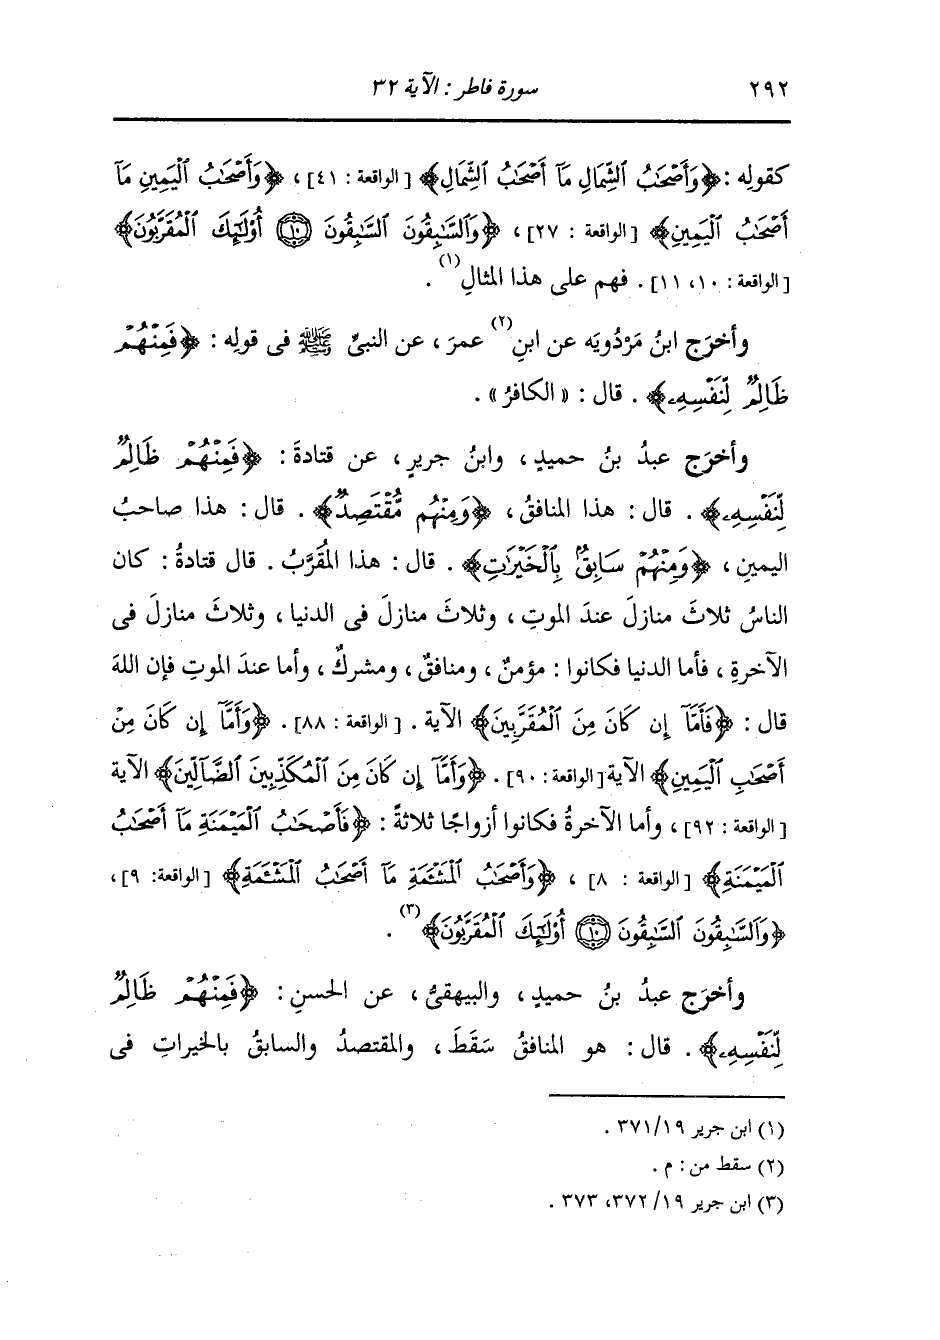 ٢٩٢ سورة فاطر : الآية ٣٢
كقوله : ﴿وَأَصْحَٰبُ ٱلشِّمَالِ مَآ أَصْحَٰبُ ٱلشِّمَالِ﴾ [الواقعة : ٤١] ، ﴿وَأَصْحَٰبُ ٱلْيَمِينِ مَآ
أَصْحَٰبُ ٱلْيَمِينِ﴾ [الواقعة : ٢٧] ، ﴿وَٱلسَّٰبِقُونَ ٱلسَّٰبِقُونَ ۝١٠ أُوْلَٰٓئِكَ ٱلْمُقَرَّبُونَ﴾
[الواقعة : ١٠، ١١] . فهم على هذا المثالِ(١) .
وأخرَج ابنُ مَرْدُويَه عن ابنِ(٢) عمرَ ، عن النبىِّ ﷺ فى قولِه : ﴿فَمِنْهُمْ
ظَالِمٌ لِّنَفْسِهِۦ﴾ . قال : « الكافرُ » .
وأخرَج عبدُ بنُ حميدٍ ، وابنُ جريرٍ ، عن قتادةَ : ﴿فَمِنْهُمْ ظَالِمٌ
لِّنَفْسِهِۦ﴾ . قال : هذا المنافقُ ، ﴿وَمِنْهُم مُّقْتَصِدٌ﴾ . قال : هذا صاحبُ
اليمينِ ، ﴿وَمِنْهُمْ سَابِقٌۢ بِٱلْخَيْرَٰتِ﴾ . قال : هذا المُقَرَّبُ . قال قتادةُ : كان
الناسُ ثلاثَ منازلَ عندَ الموتِ ، وثلاثَ منازلَ فى الدنيا ، وثلاثَ منازلَ فى
الآخرةِ ، فأما الدنيا فكانوا : مؤمنٌ ، ومنافقٌ ، ومشركٌ ، وأما عندَ الموتِ فإن اللهَ
قال : ﴿فَأَمَّآ إِن كَانَ مِنَ ٱلْمُقَرَّبِينَ﴾ الآية . [الواقعة : ٨٨] . ﴿وَأَمَّآ إِن كَانَ مِنْ
أَصْحَٰبِ ٱلْيَمِينِ﴾ الآية [الواقعة : ٩٠] . ﴿وَأَمَّآ إِن كَانَ مِنَ ٱلْمُكَذِّبِينَ ٱلضَّآلِّينَ﴾ الآية
[الواقعة : ٩٢] ، وأما الآخرةُ فكانوا أزواجًا ثلاثةً : ﴿فَأَصْحَٰبُ ٱلْمَيْمَنَةِ مَآ أَصْحَٰبُ
ٱلْمَيْمَنَةِ﴾ [الواقعة : ٨] ، ﴿وَأَصْحَٰبُ ٱلْمَشْـَٔمَةِ مَآ أَصْحَٰبُ ٱلْمَشْـَٔمَةِ﴾ [الواقعة: ٩] ،
﴿وَٱلسَّٰبِقُونَ ٱلسَّٰبِقُونَ ۝١٠ أُوْلَٰٓئِكَ ٱلْمُقَرَّبُونَ﴾(٣) .
وأخرَج عبدُ بنُ حميدٍ ، والبيهقىُّ ، عن الحسنِ : ﴿فَمِنْهُمْ ظَالِمٌ
لِّنَفْسِهِۦ﴾ . قال : هو المنافقُ سَقَطَ ، والمقتصدُ والسابقُ بالخيراتِ فى
(١) ابن جرير ١٩/ ٣٧١ .
(٢) سقط من : م .
(٣) ابن جرير ١٩/ ٣٧٢، ٣٧٣ .